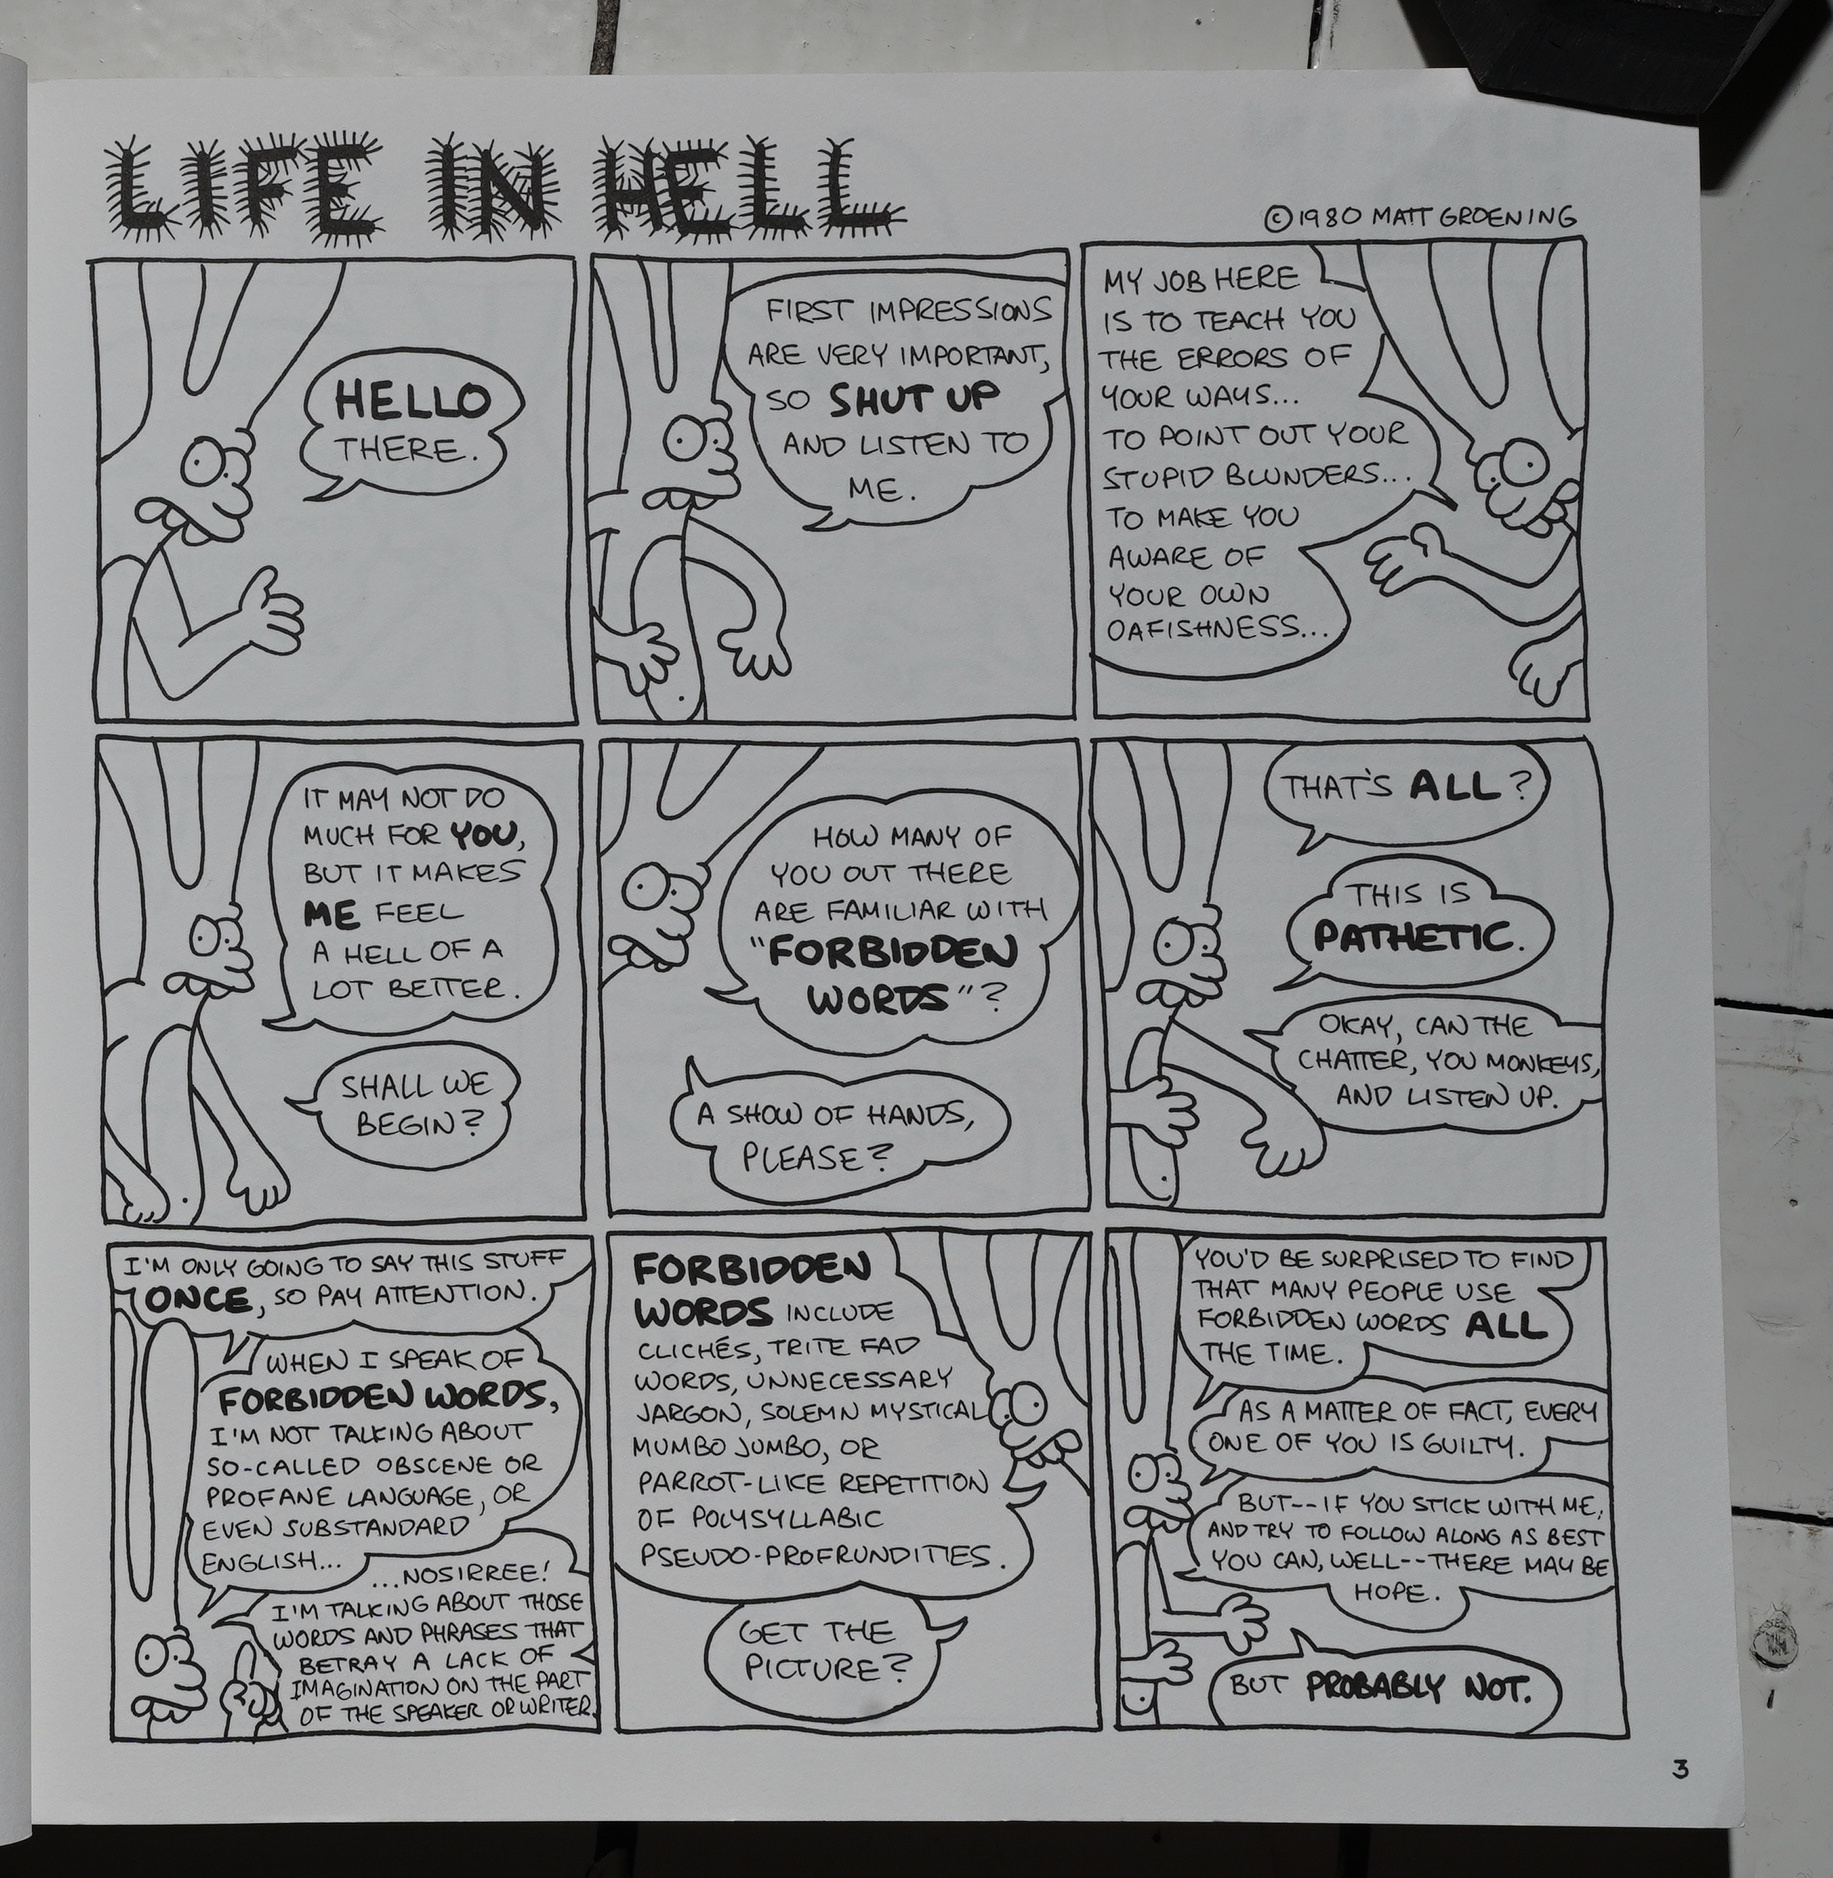 LIFE IN HELL
©1980 MATT GROENING
HELLO
THERE.
FIRST IMPRESSIONS
ARE VERY IMPORTANT,
SO SHUT UP
AND LISTEN TO
ME.
MY JOB HERE
IS TO TEACH YOU
THE ERRORS OF
YOUR WAYS...
TO POINT OUT YOUR
STUPID BLUNDERS...
TO MAKE YOU
AWARE OF
YOUR OWN
OAFISHNESS...
IT MAY NOT DO
MUCH FOR YOU,
BUT IT MAKES
ME FEEL
A HELL OF A
LOT BETTER.
SHALL WE
BEGIN?
HOW MANY OF
YOU OUT THERE
ARE FAMILIAR WITH
"FORBIDDEN
WORDS"?
A SHOW OF HANDS,
PLEASE?
THAT'S ALL?
THIS IS
PATHETIC.
OKAY, CAN THE
CHATTER, YOU MONKEYS,
AND LISTEN UP.
I'M ONLY GOING TO SAY THIS STUFF
ONCE, SO PAY ATTENTION.
WHEN I SPEAK OF
FORBIDDEN WORDS,
I'M NOT TALKING ABOUT
SO-CALLED OBSCENE OR
PROFANE LANGUAGE, OR
EVEN SUBSTANDARD
ENGLISH...
...NOSIRREE!
I'M TALKING ABOUT THOSE
WORDS AND PHRASES THAT
BETRAY A LACK OF
IMAGINATION ON THE PART
OF THE SPEAKER OR WRITER.
FORBIDDEN
WORDS INCLUDE
CLICHÉS, TRITE FAD
WORDS, UNNECESSARY
JARGON, SOLEMN MYSTICAL
MUMBO JUMBO, OR
PARROT-LIKE REPETITION
OF POLYSYLLABIC
PSEUDO-PROFRUNDITIES.
GET THE
PICTURE?
YOU'D BE SURPRISED TO FIND
THAT MANY PEOPLE USE
FORBIDDEN WORDS ALL
THE TIME.
AS A MATTER OF FACT, EVERY
ONE OF YOU IS GUILTY.
BUT--IF YOU STICK WITH ME,
AND TRY TO FOLLOW ALONG AS BEST
YOU CAN, WELL--THERE MAY BE
HOPE.
BUT PROBABLY NOT.
3